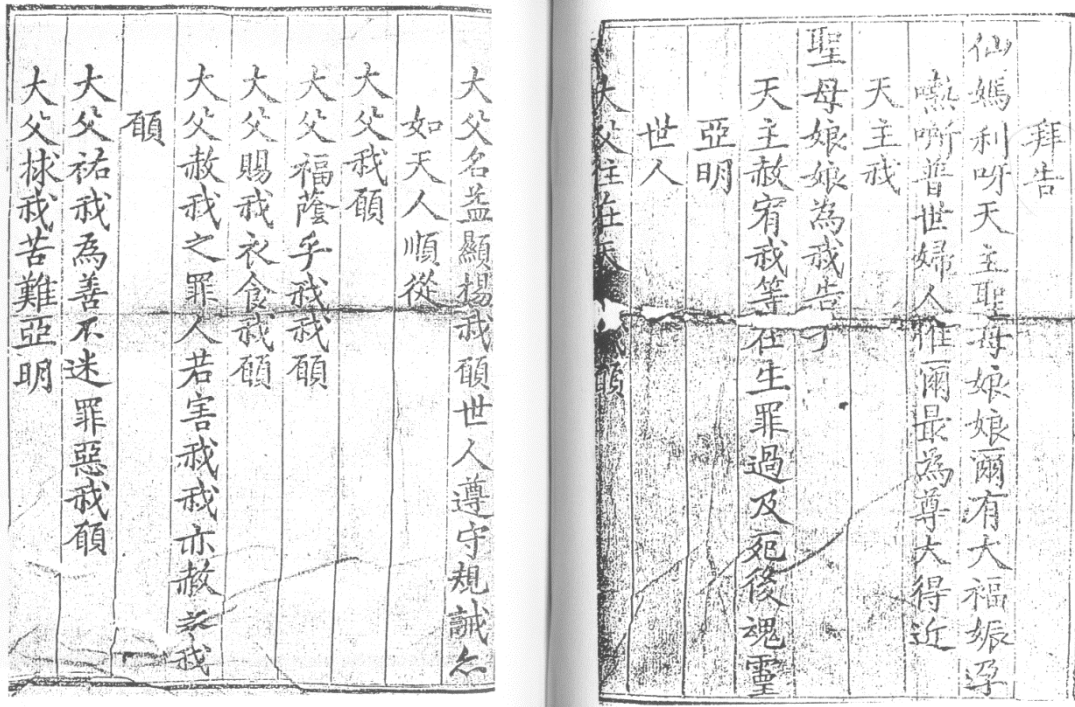 拜告
仙媽利呀天主聖母娘娘爾有大福娠孕
嘶普世婦人惟爾最為尊大得近
天主我
聖母娘娘為我告
天主赦宥我等在生罪過及死後魂靈
亞明
世人
大父往在天我願
大父名益顯揚我願世人遵守規誡亦
如天人順從
大父我願
大父福蔭乎我我願
大父賜我衣食我願
大父赦我之罪人若害我我亦赦之我
願
大父祐我為善不迷罪惡我願
大父捄我苦難亞明